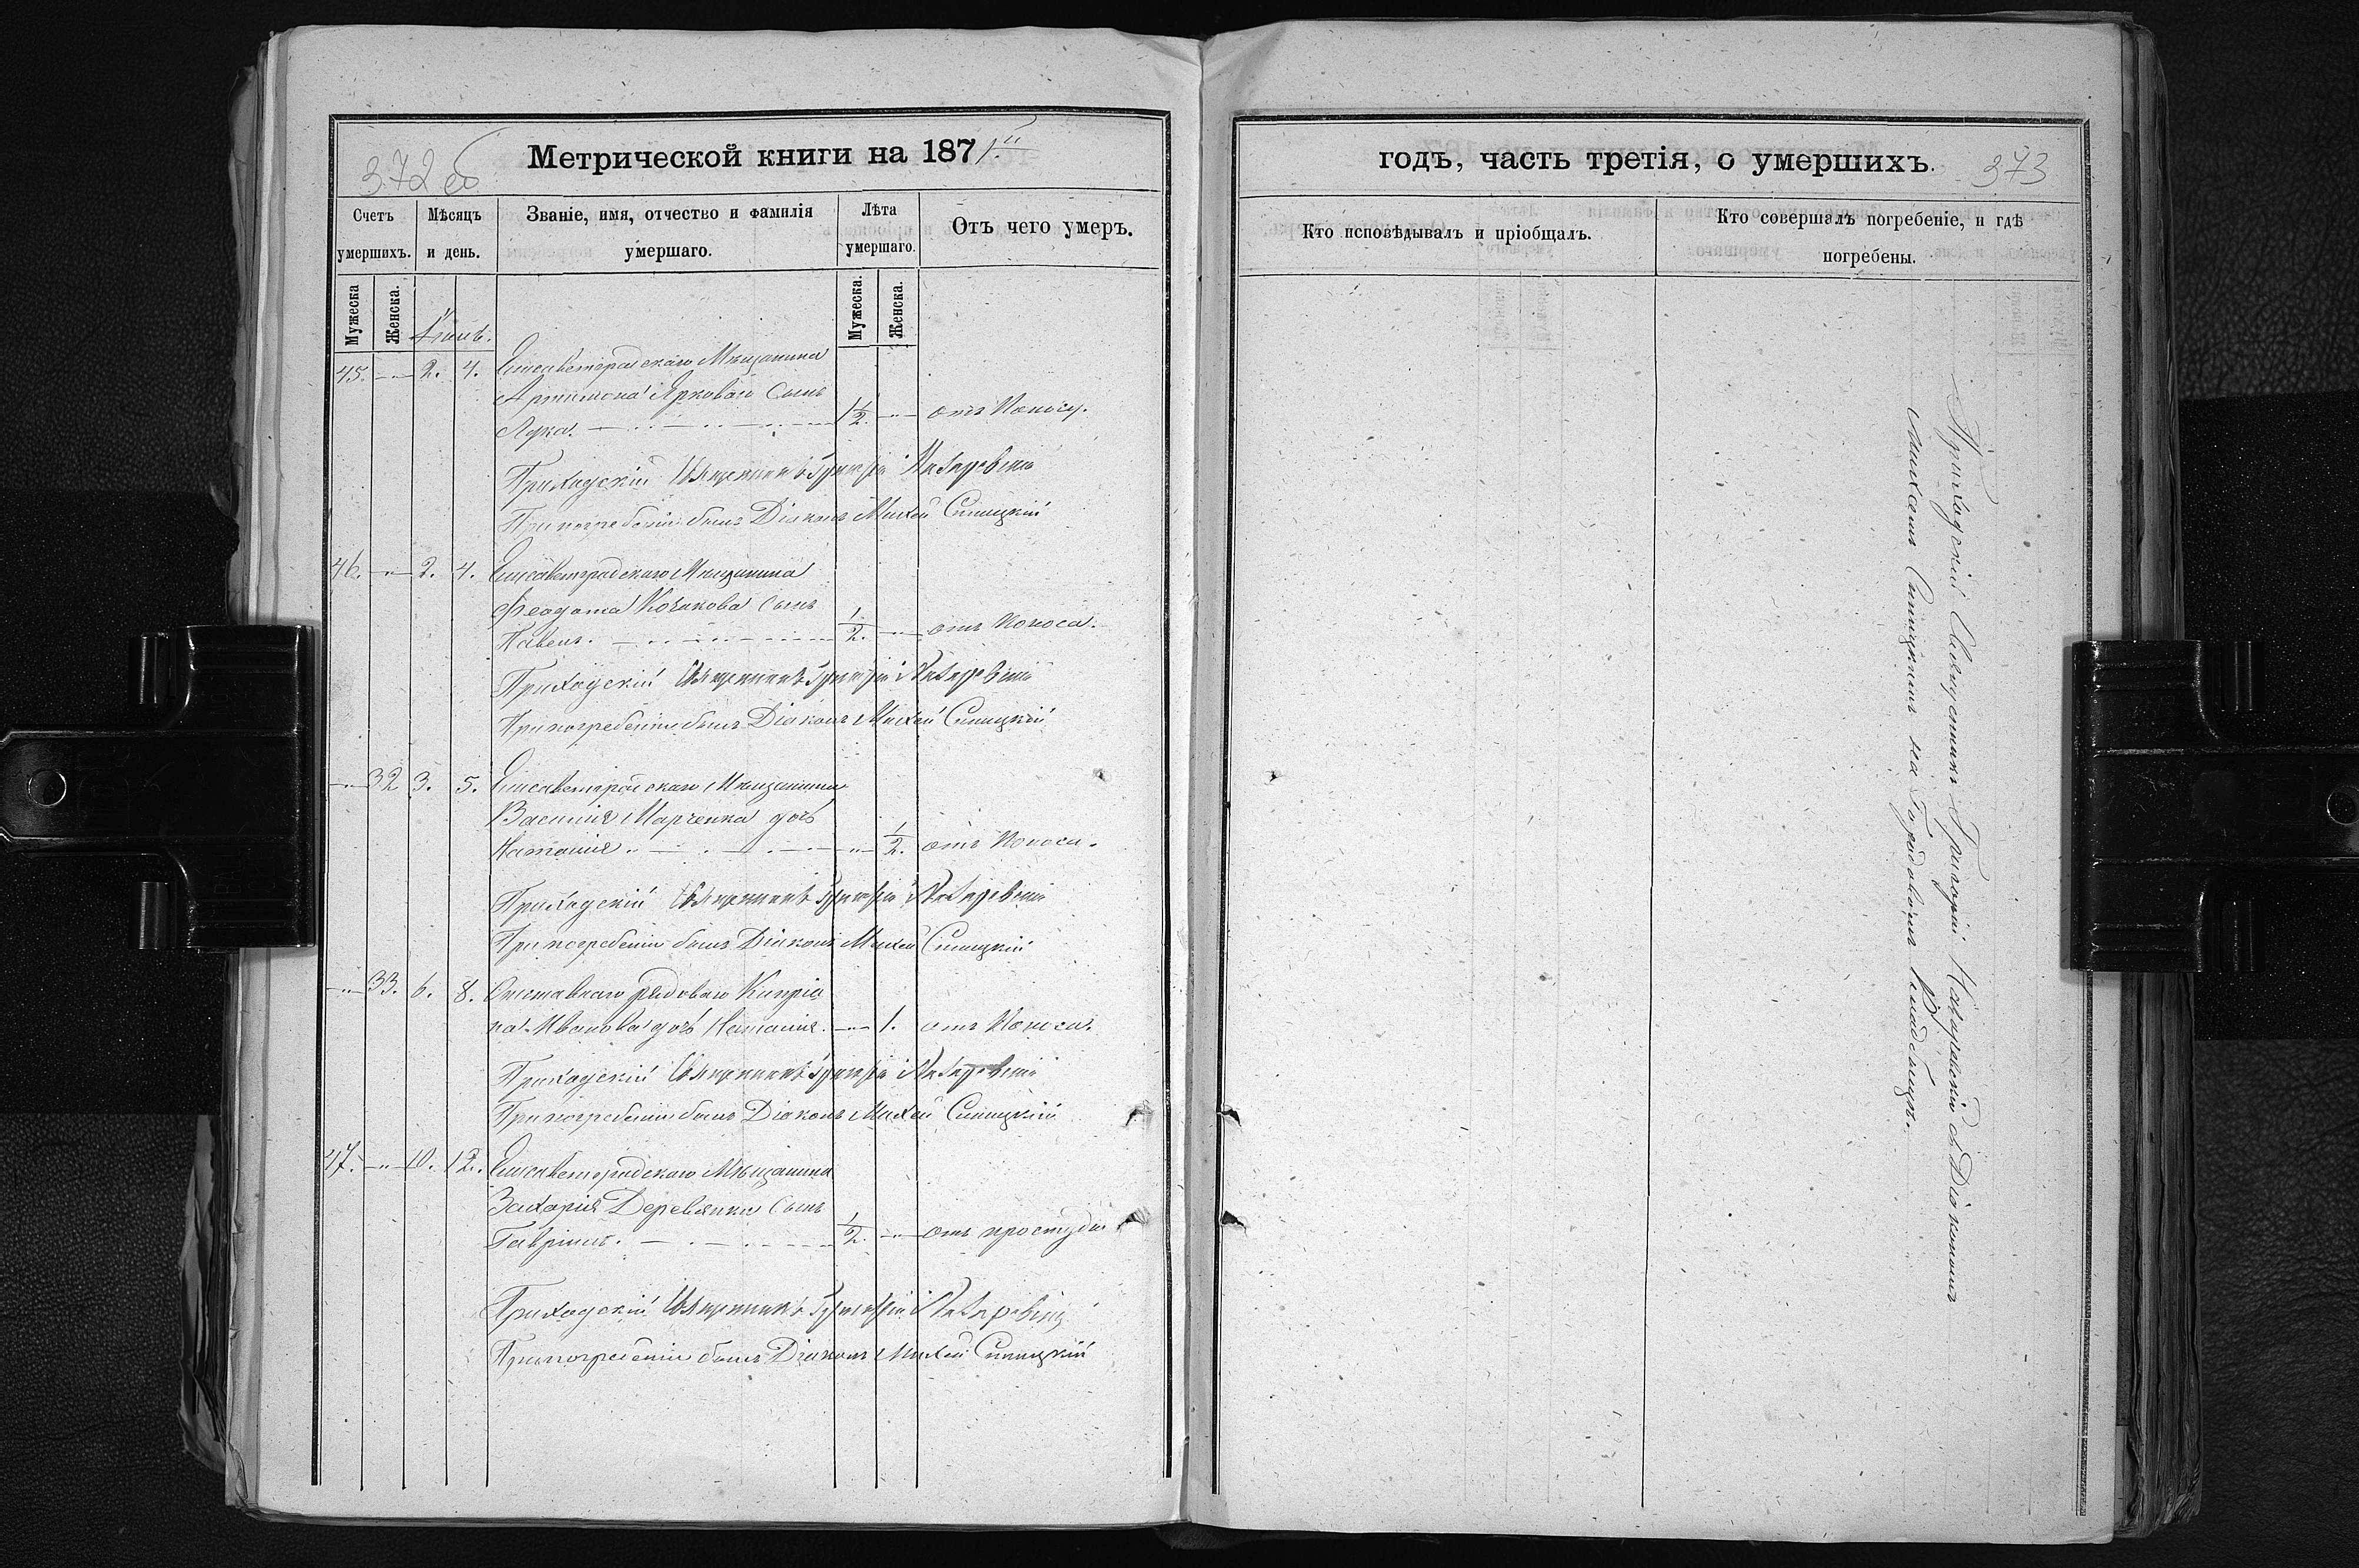 372 об
Метрической книги на 1871й
Счетъ умершихъ.
Мѣсяцъ и день.
Званіе, имя, отчество и фамилія умершаго.
Лѣта умершаго.
Отъ чего умеръ.
Мужеска
Женска.
Мужеска.
Женска.
45. —"— 2. 4. Елисаветградскаго Мѣщанина
Сынъ
Лука. 1 1/2 —"— отъ Поносу.
Приходскій Священникъ Григорій
При погребеніи былъ Діаконъ Михей Синицкій
46. —"— 2. 4. Елисаветградскаго Мѣщанина
Феодота Сынъ
Павелъ. 1/2. —"— отъ Поноса.
Приходскій Священникъ Григорій
При погребеніи былъ Діаконъ Михей Синицкій
—"— 32 3. 5. Елисаветградскаго Мѣщанина
Василия Марченка дочь
Наталия —"— 1/2. отъ Поноса.
Приходскій Священникъ Григорій
При погребеніи былъ Діаконъ Михей Синицкій
—"— 33. 6. 8. Отставнаго рядоваго Кипріа
на Иванова дочь Наталия. —"— 1. отъ Поноса.
Приходскій Священникъ Григорій
При погребеніи былъ Діаконъ Михей Синицкій
47. —"— 10. 12. Елисаветградскаго Мѣщанина
Захария Деревянки Сынъ
Гавріилъ. 1/2. —"— отъ простуды
Приходскій Священникъ Григорій
При погребеніи былъ Діаконъ Михей Синицкій
годъ, часть третія, о умершихъ.
373
Кто исповѣдывалъ и пріобщалъ.
Кто совершалъ погребеніе, и гдѣ погребены.
Приходскій Священникъ Григорій съ Діакономъ
Михеемъ Синицкимъ на Городовомъ кладбищѣ.